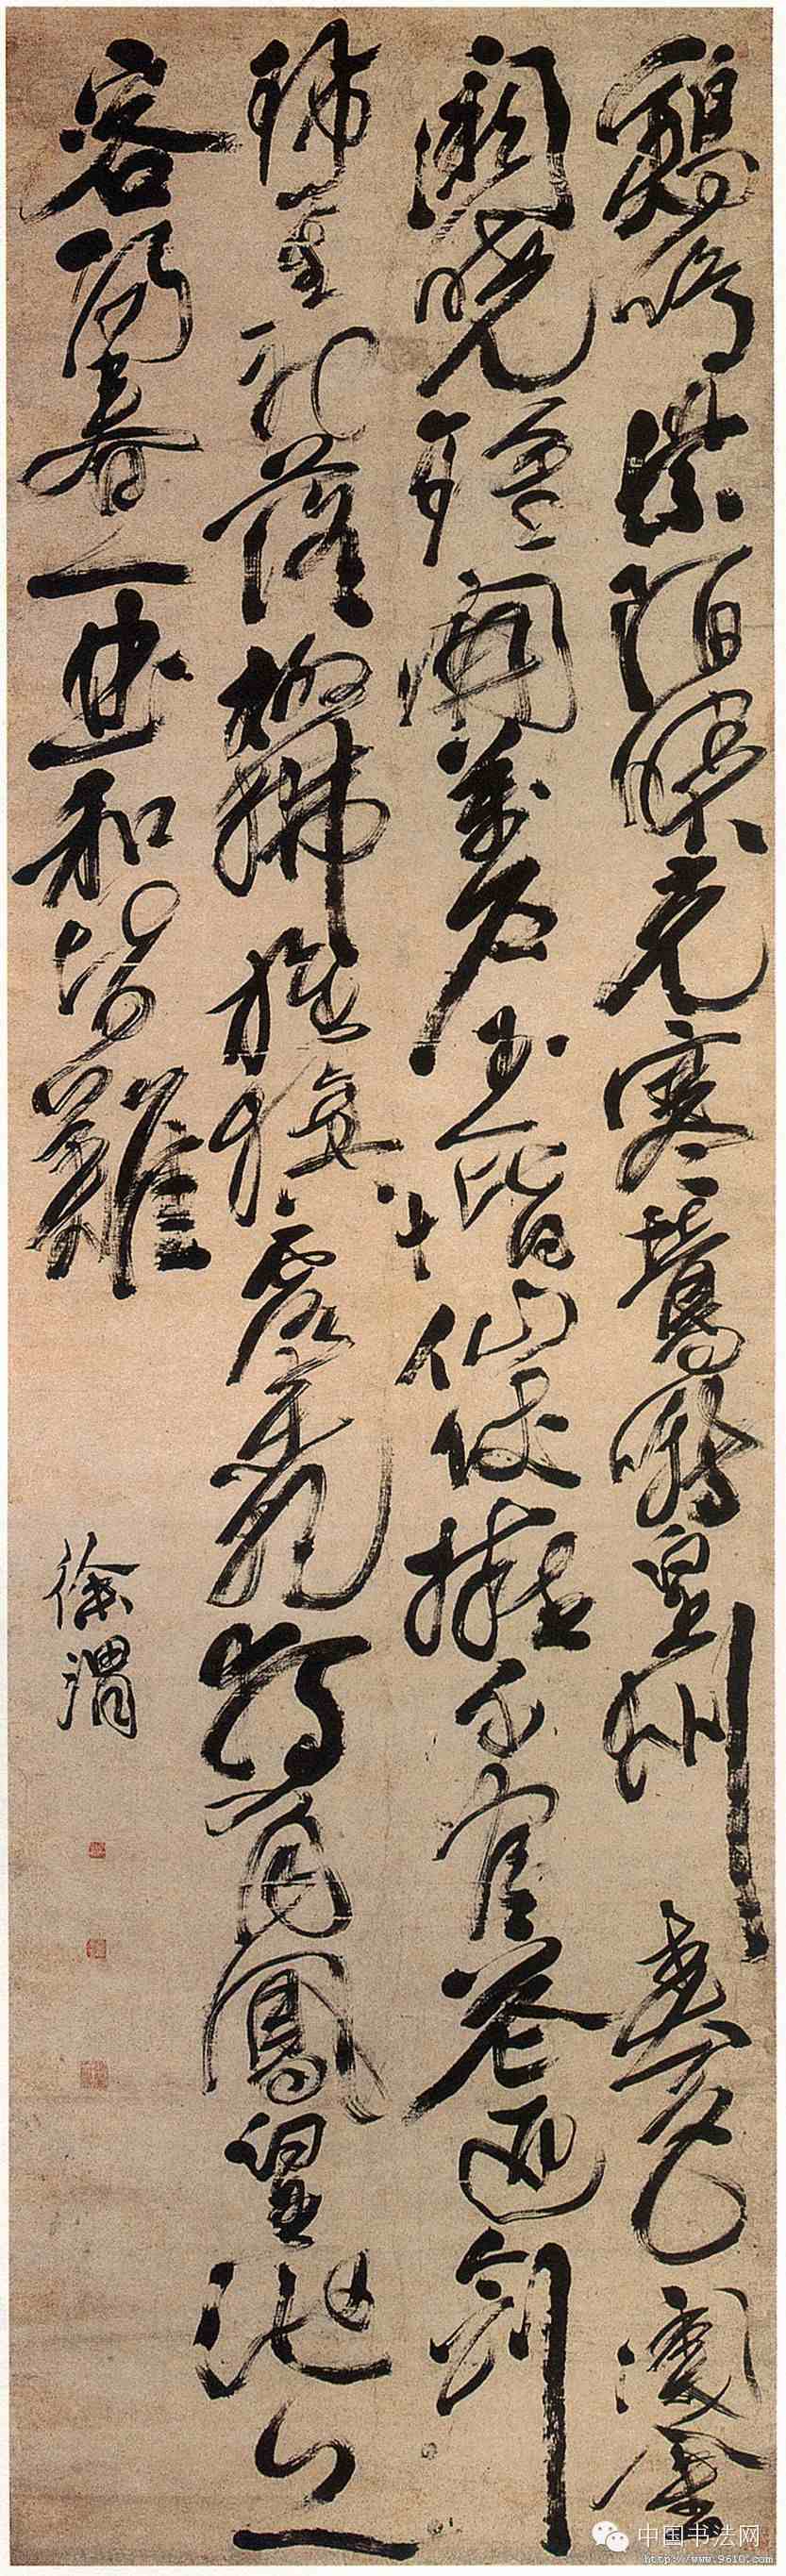 鷄鳴紫陌曙光寒鶯囀皇州春色闌金
闕曉鐘開萬户玉階仙仗擁千官花迎劍
珮星初落柳拂旌旂露未乾獨有鳳皇池上
客陽春一曲和皆難
徐渭
中国书法网
http://www.9610.com